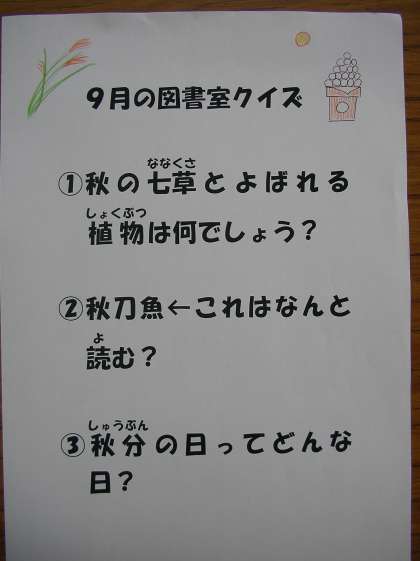 9月の図書室クイズ
①秋の七草とよばれる
植物は何でしょう？
②秋刀魚←これはなんと
読む？
③秋分の日ってどんな
日？
ななくさ
しょくぶつ
よ
しゅうぶん